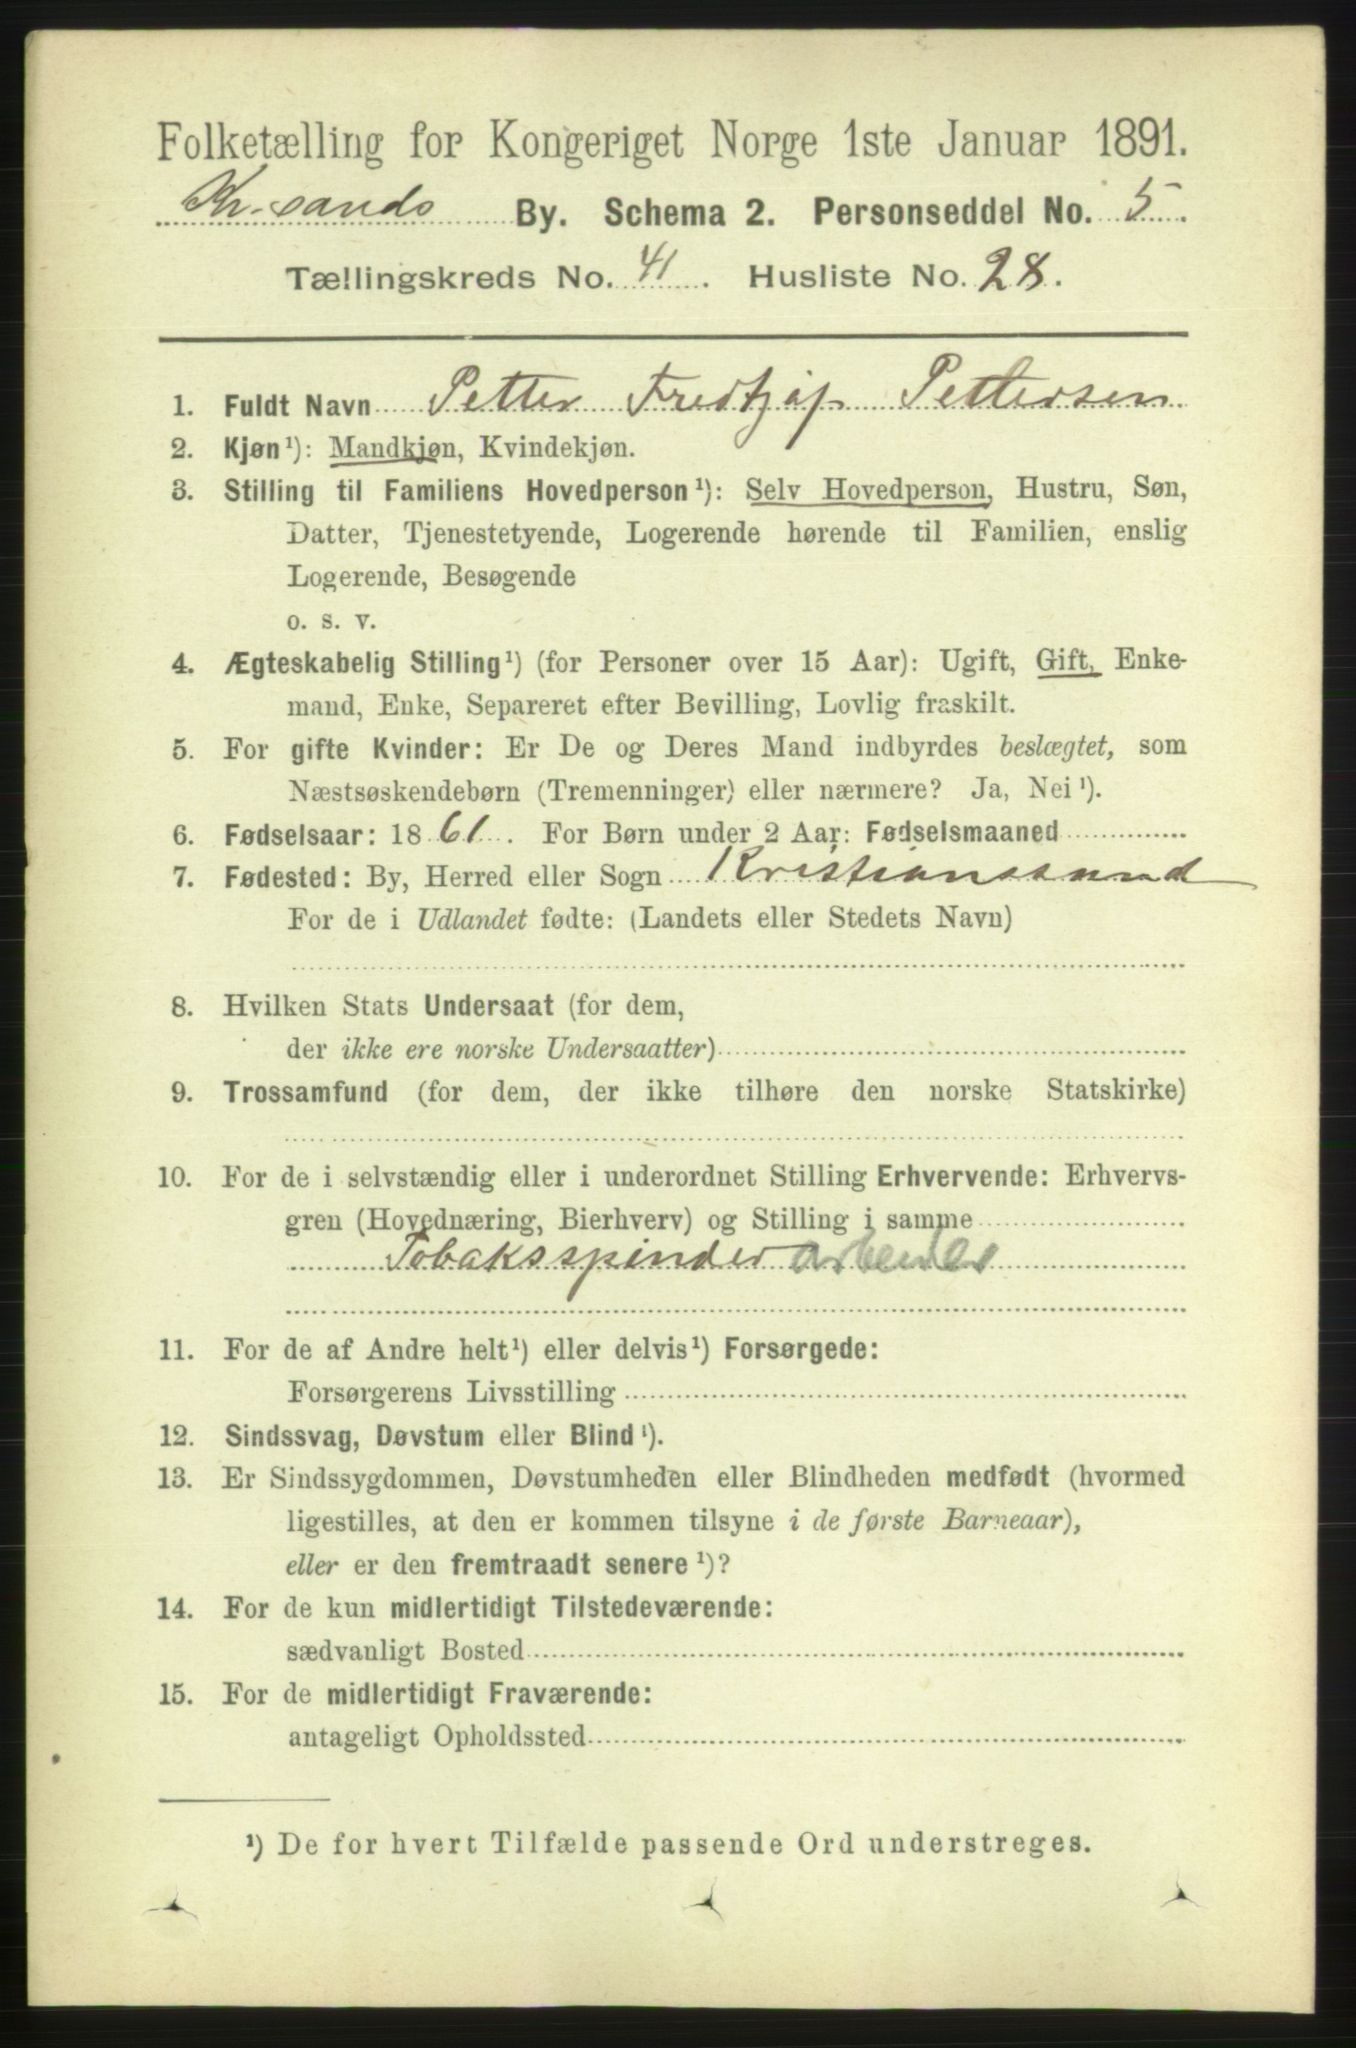 Folketælling for Kongeriget Norge 1ste Januar 1891.
Kr.sands By. Schema 2. Personseddel No. 5.
Tællingskreds No. 41. Husliste No. 28.
1. Fuldt Navn Petter Fredtjof Pettersen
2. Kjøn¹): Mandkjøn, Kvindekjøn.
3. Stilling til Familiens Hovedperson¹): Selv Hovedperson, Hustru, Søn,
Datter, Tjenestetyende, Logerende hørende til Familien, enslig
Logerende, Besøgende
o. s. v.
4. Ægteskabelig Stilling¹) (for Personer over 15 Aar): Ugift, Gift, Enke-
mand, Enke, Separeret efter Bevilling, Lovlig fraskilt.
5. For gifte Kvinder: Er De og Deres Mand indbyrdes beslægtet, som
Næstsøskendebørn (Tremenninger) eller nærmere? Ja, Nei¹).
6. Fødselsaar: 1861. For Børn under 2 Aar: Fødselsmaaned
7. Fødested: By, Herred eller Sogn Kristianssand
For de i Udlandet fødte: (Landets eller Stedets Navn)
8. Hvilken Stats Undersaat (for dem,
der ikke ere norske Undersaatter)
9. Trossamfund (for dem, der ikke tilhøre den norske Statskirke)
10. For de i selvstændig eller i underordnet Stilling Erhvervende: Erhvervs-
gren (Hovednæring, Bierhverv) og Stilling i samme
Tobaksspinder arbeider
11. For de af Andre helt¹) eller delvis¹) Forsørgede:
Forsørgerens Livsstilling
12. Sindssvag, Døvstum eller Blind¹).
13. Er Sindssygdommen, Døvstumheden eller Blindheden medfødt (hvormed
ligestilles, at den er kommen tilsyne i de første Barneaar),
eller er den fremtraadt senere¹)?
14. For de kun midlertidigt Tilstedeværende:
sædvanligt Bosted
15. For de midlertidigt Fraværende:
antageligt Opholdssted
¹) De for hvert Tilfælde passende Ord understreges.